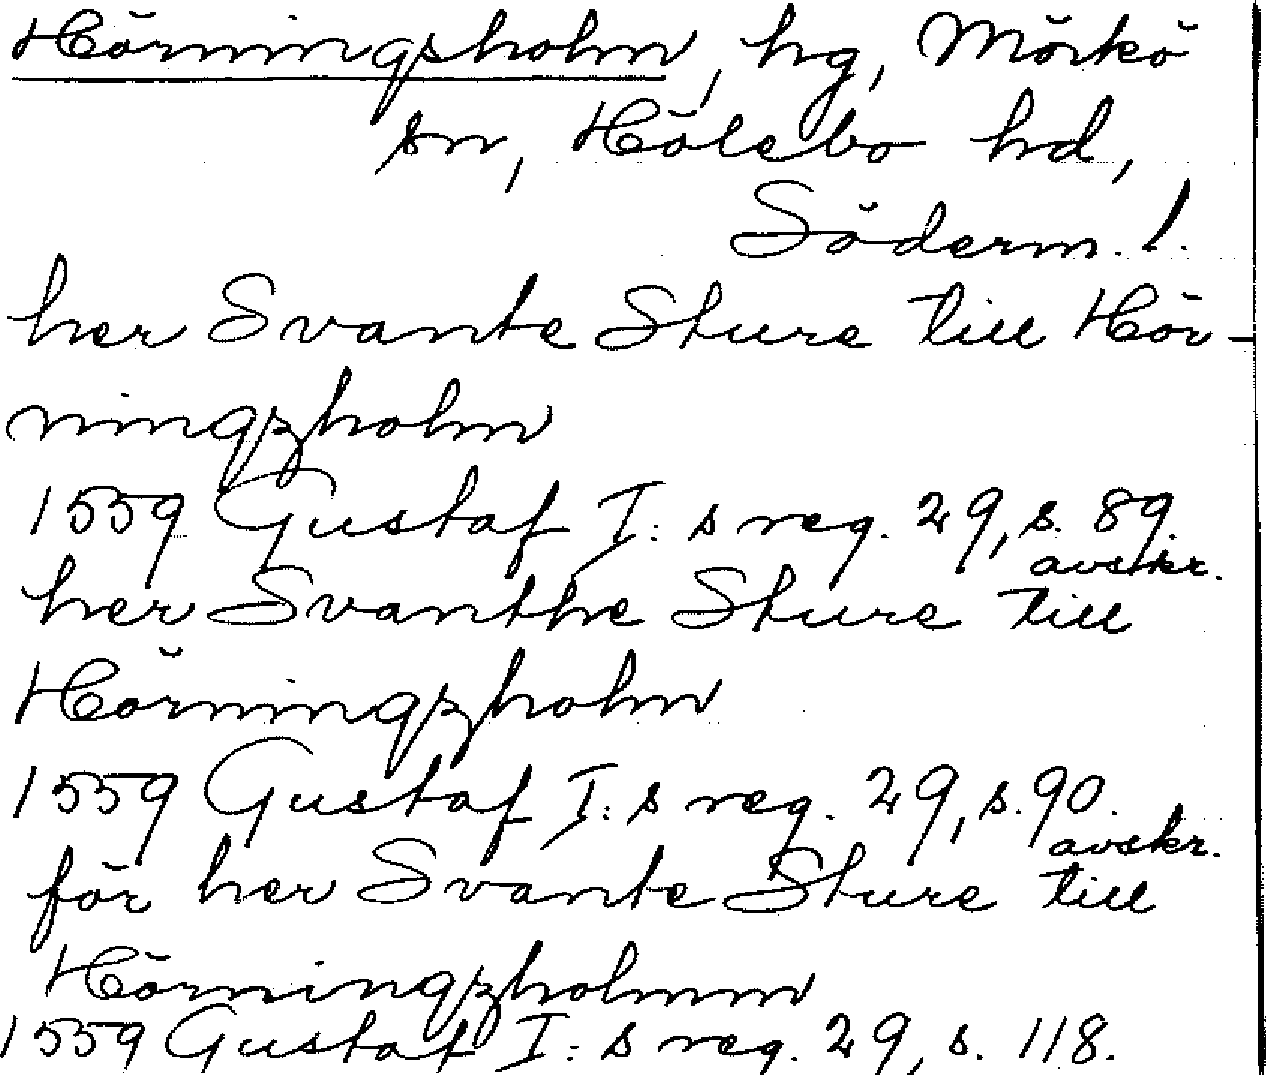 Hörningsholm, hg, Mörkö
sn, Hölebo hd,
Söderm. l.
her Svante Sture till Hör-
ningzholm
1559 Gustaf I:s reg. 29, s. 89.
avskr.
her Svanthe Sture till
Hörningzholm
1559 Gustaf I:s reg. 29, s. 90.
avskr.
för her Svante Sture till
Hörningzholmm
1559 Gustaf I:s reg. 29, s. 118.